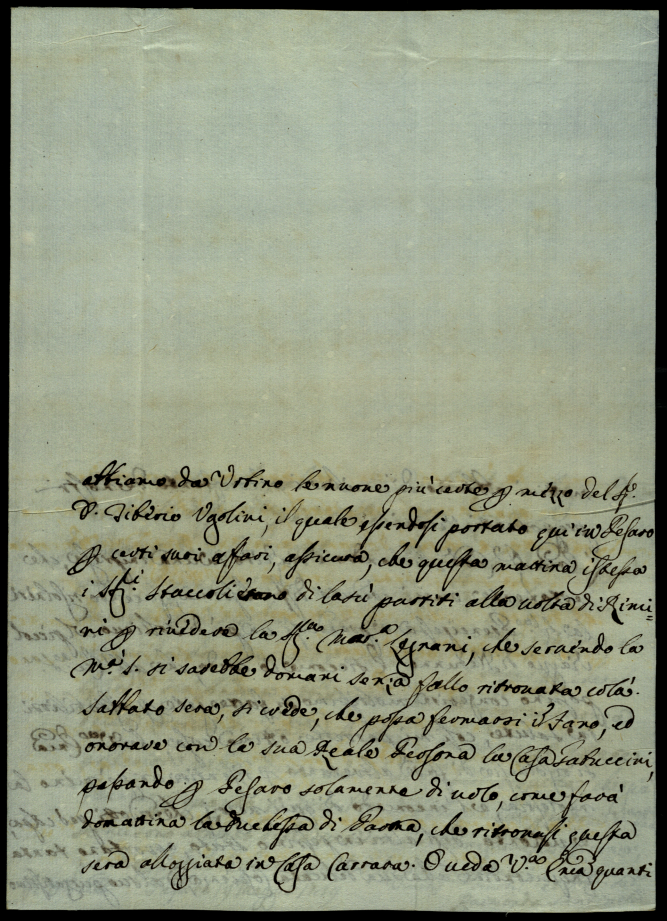 abbiamo da Urbino le nuove più certe p mezzo del Sig.
D. Tiberio Ugolini, il quale essendosi portato quì in Pesaro
p certi suoi affari, assicura, che questa mattina istessa
i Sig.ri Staccoli erano di lasù partiti alla volta di Rimi=
ni p rivedere la Sig.ra Mar.a Legnani, che servendo la
M.a S. si sarebbe domani senza fallo ritrovata colà.
Sabbato sera, si crede, che possa fermarsi in Fano, ed
onorare con la sua Reale Persona la Casa Gatuccini,
passando p Pesaro solamente di volo, come farà
domattina la Duchessa di Parma, che ritrovasi questa
sera alloggiata in Casa Carrara. Or veda V.ra quanti